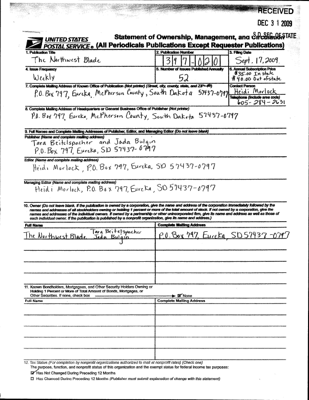 RECEIVED
DEC 31 2009
S.D. SEC. OF STATE
UNITED STATES POSTAL SERVICE
Statement of Ownership, Management, and Circulation
(All Periodicals Publications Except Requester Publications)
1. Publication Title
The Northwest Blade
2. Publication Number
3. Filing Date
Sept. 17, 2009
4. Issue Frequency
Weekly
5. Number of Issues Published Annually
52
6. Annual Subscription Price
$35.00 In state
$40.00 Out of state
7. Complete Mailing Address of Known Office of Publication (Not printer) (Street, city, county, state, and ZIP+4®)
P.O. Box 797, Eureka, McPherson County, South Dakota 57437-0797
Contact Person
Heidi Marlock
Telephone (Include area code)
605-284-2631
8. Complete Mailing Address of Headquarters or General Business Office of Publisher (Not printer)
P.O. Box 797, Eureka, McPherson County, South Dakota 57437-0797
9. Full Names and Complete Mailing Addresses of Publisher, Editor, and Managing Editor (Do not leave blank)
Publisher (Name and complete mailing address)
Tara Beitelspacher and Jada Bulgin
P.O. Box 797, Eureka, SD 57437-0797
Editor (Name and complete mailing address)
Heidi Marlock, P.O. Box 797, Eureka, SD 57437-0797
Managing Editor (Name and complete mailing address)
Heidi Marlock, P.O. Box 797, Eureka, SD 57437-0797
10. Owner (Do not leave blank. If the publication is owned by a corporation, give the name and address of the corporation immediately followed by the
names and addresses of all stockholders owning or holding 1 percent or more of the total amount of stock. If not owned by a corporation, give the
names and addresses of the individual owners. If owned by a partnership or other unincorporated firm, give its name and address as well as those of
each individual owner. If the publication is published by a nonprofit organization, give its name and address.)
Full Name
Complete Mailing Address
Tara Beitelspacher
The Northwest Blade Jada Bulgin
P.O. Box 797, Eureka, SD 57437-0797
11. Known Bondholders, Mortgagees, and Other Security Holders Owning or
Holding 1 Percent or More of Total Amount of Bonds, Mortgages, or
Other Securities. If none, check box
None
Full Name
Complete Mailing Address
12. Tax Status (For completion by nonprofit organizations authorized to mail at nonprofit rates) (Check one)
The purpose, function, and nonprofit status of this organization and the exempt status for federal income tax purposes:
Has Not Changed During Preceding 12 Months
Has Changed During Preceding 12 Months (Publisher must submit explanation of change with this statement)